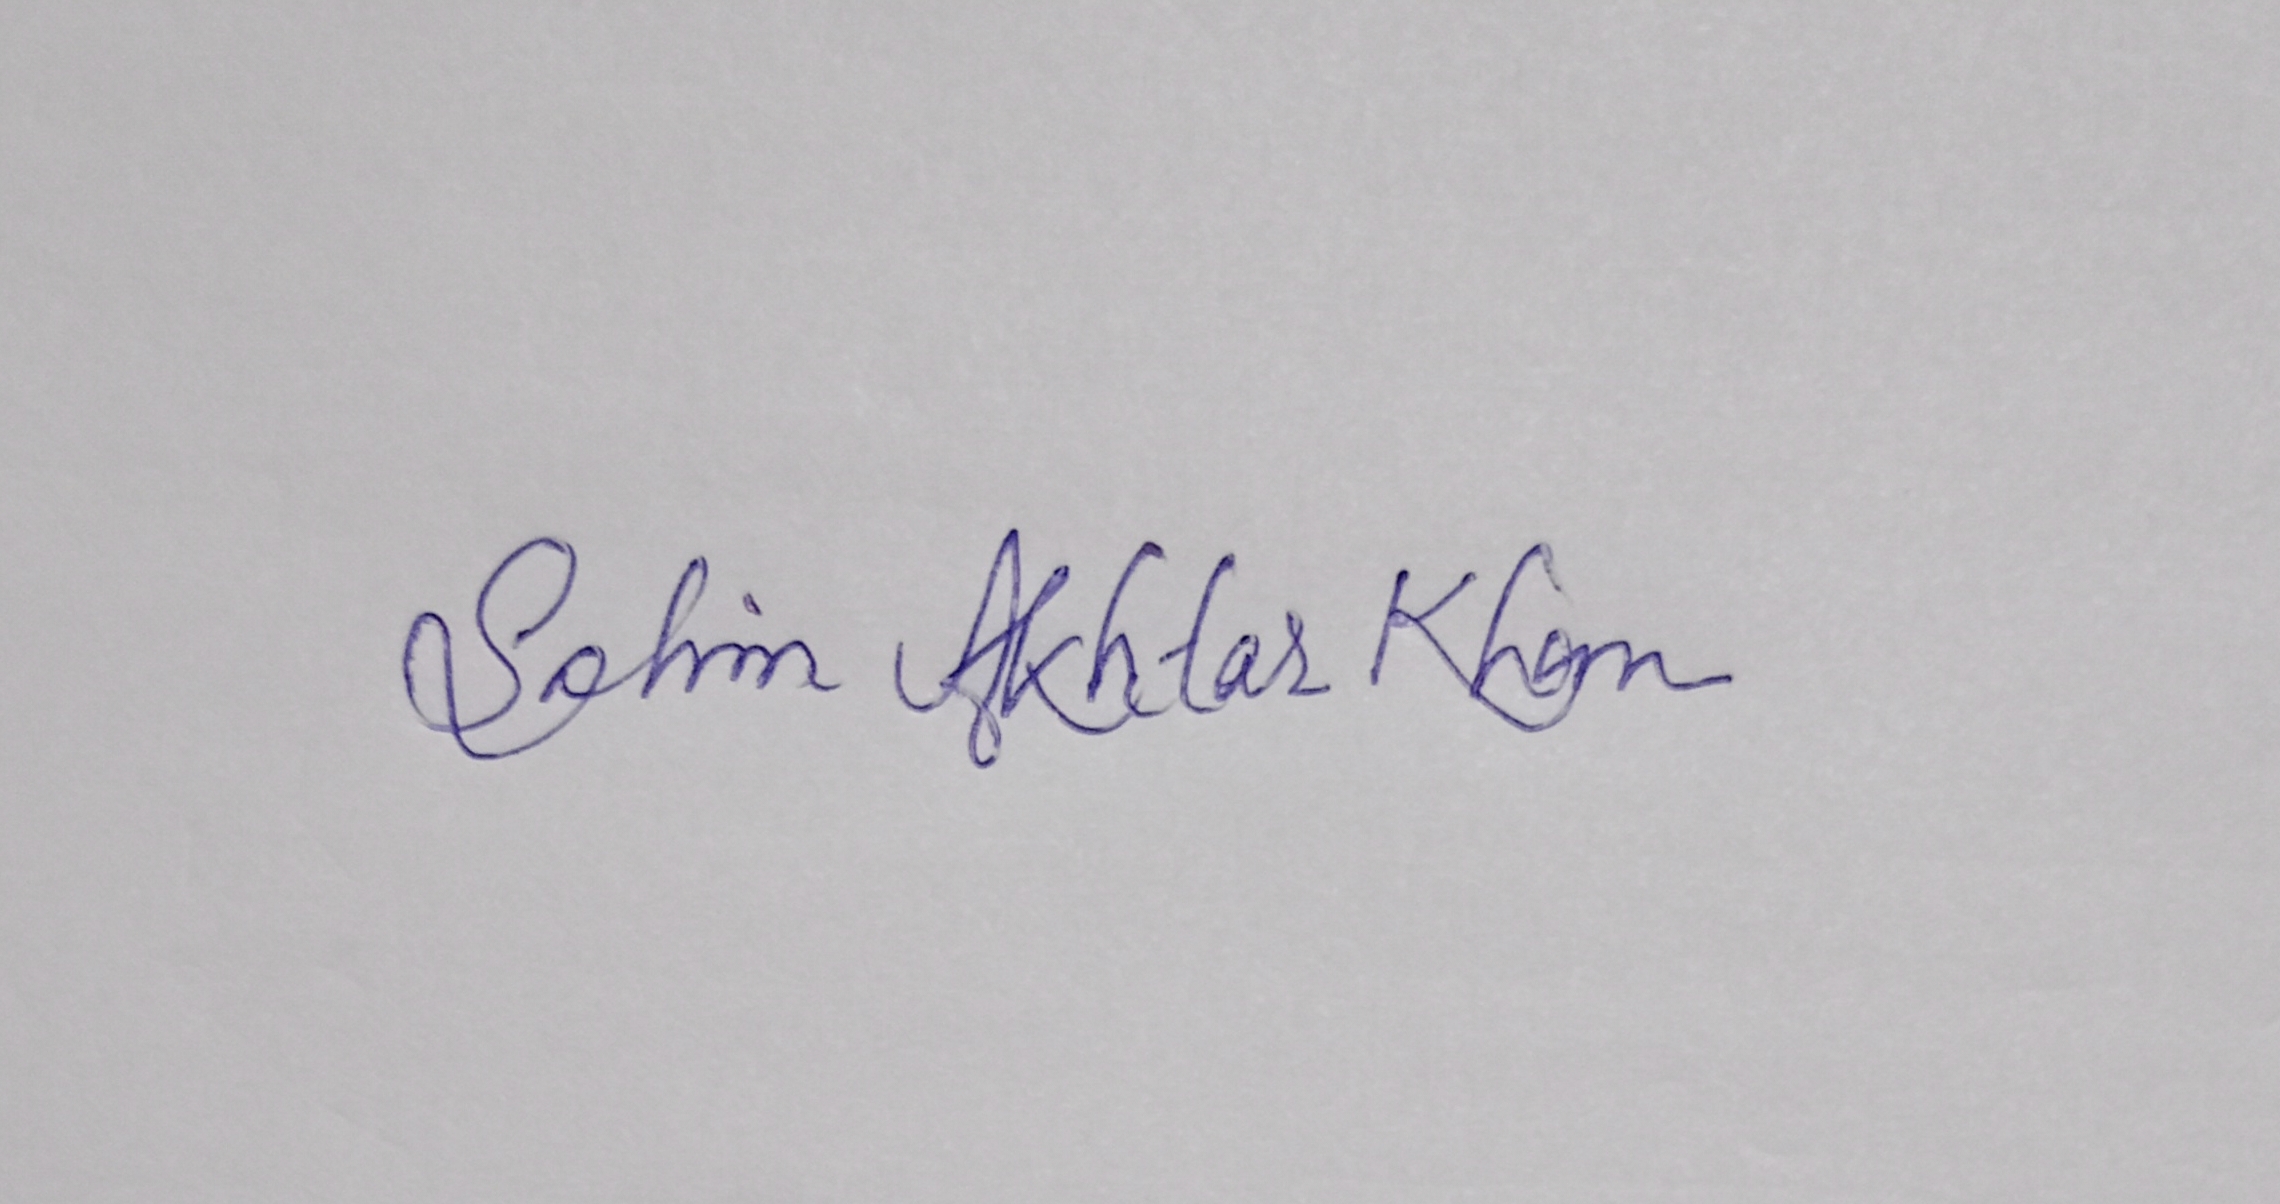 Sahin Akhtar Khan